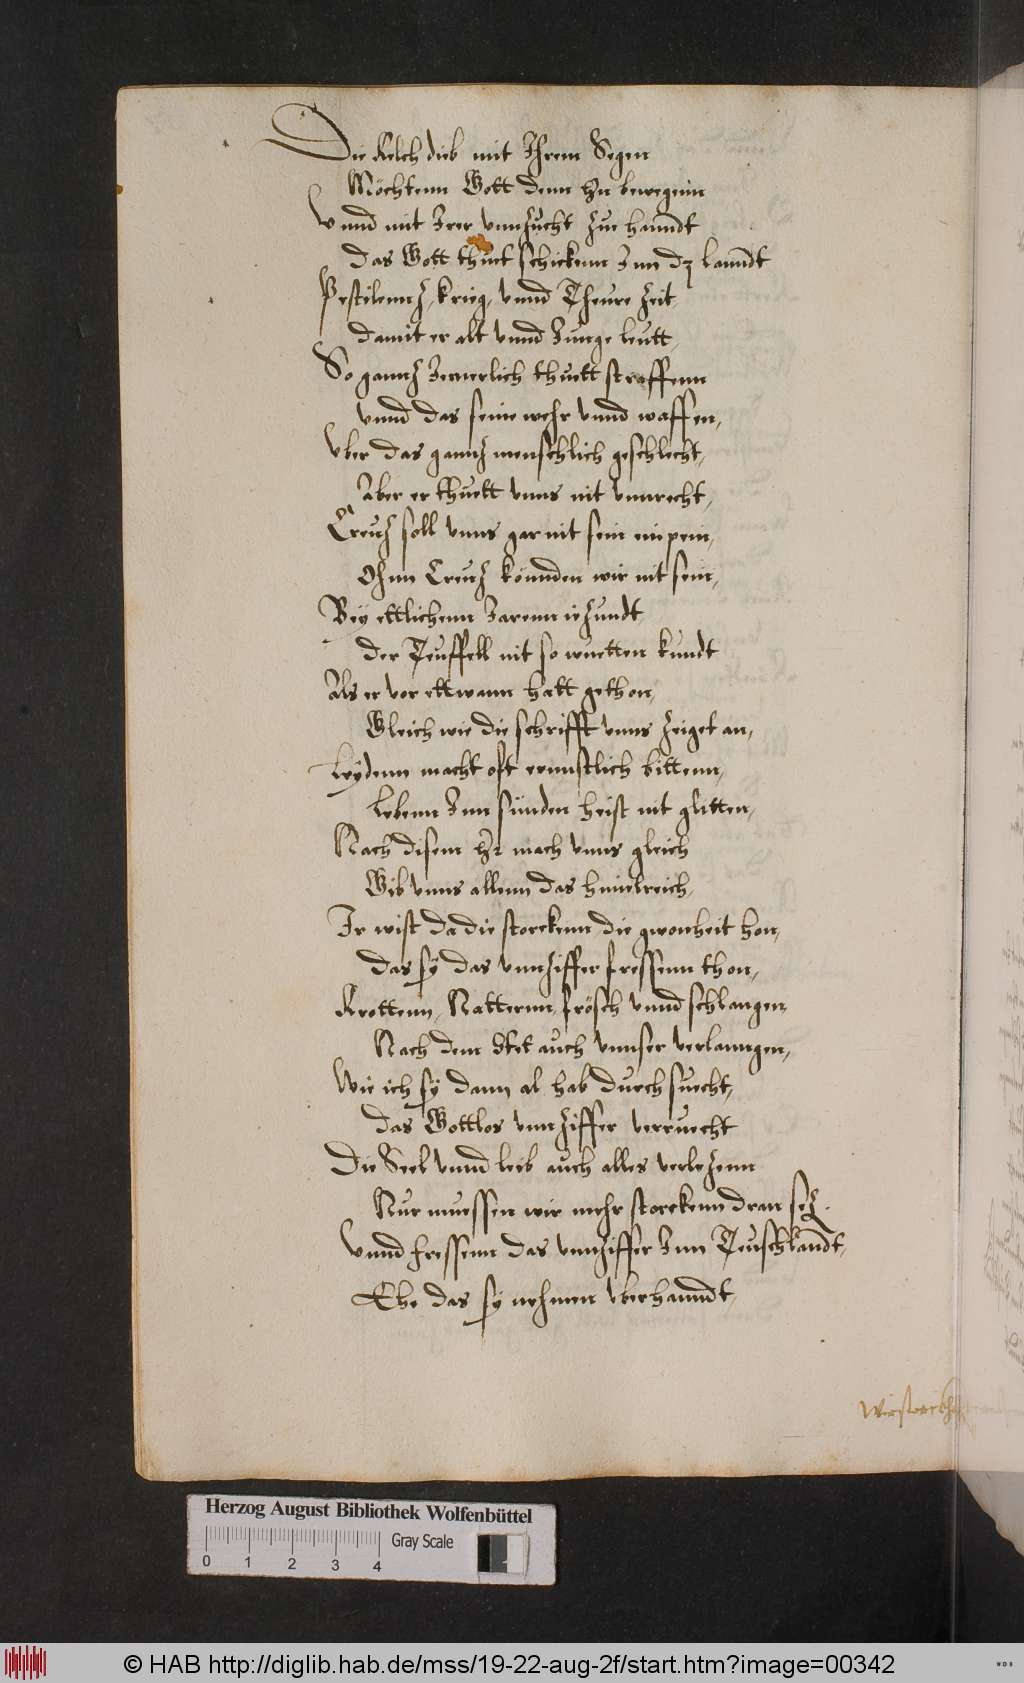 Die Kelch dieb mit Ihrem Segen
Möchtenn Gott denn Hn bewegenn
Vnnd mit Irer vnnzucht zue hanndt
das Gott thuet schickenn Inn dz lanndt
Pestilenntz, krieg, vnnd Theure Zeit,
damit er alt vnnd Junge leutt,
So ganntz Jemerlich thuett straffenn
vnnd das seine wehr vnnd waffen,
Vber das ganntz menschlich geschlecht,
Aber er thuett vnns nit vnnrecht,
Creutz soll vnns gar nit sein ein pein,
Ohnn Creutz könnden wir nit sein,
Bey ettlichenn Jarenn ietzundt
der Teuffell nit so wuetten kundt
Als er vor ettwann hatt gethon,
Gleich wie die schrifft vnns zeiget an,
Leydenn macht oft ernnstlich bittenn,
Lebenn Inn sünden heist nit glitten,
Nach disem Hr mach vnns gleich
Gib vnns allenn das himelreich,
Ir wist da die storckenn die gwonheit hon,
das sy das vnnziffer fressenn thon,
Krottenn, Natternn, frösch vnnd schlangen
Nach dem Stet auch vnnser verlanngen,
Wie ich sy dann al hab durchsuecht,
das Gottlos vnnziffer verruecht
Die Seel vnnd leib auch alles verletzenn
Nur muessen wir mehr storckenn dran setz.
Vnnd fressenn das vnnziffer Inn Teuschlandt,
Ehe das sy nehmen vberhanndt,
Herzog August Bibliothek Wolfenbüttel
Gray Scale
0 1 2 3 4
© HAB http://diglib.hab.de/mss/19-22-aug-2f/start.htm?image=00342